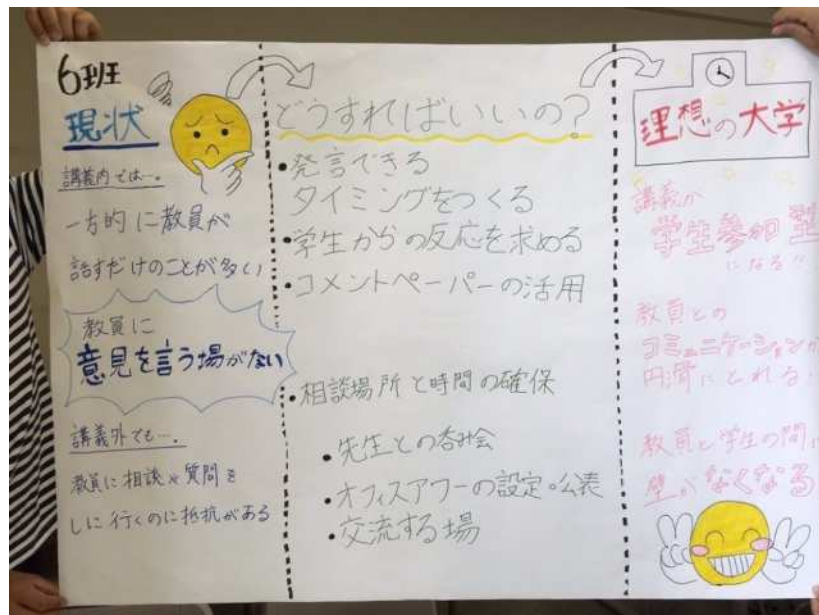 6班
現状
講義内では…。
一方的に教員が
話すだけのことが多い
教員に
意見を言う場がない
講義外でも…。
教員に相談や質問を
しに行くのに抵抗がある
どうすればいいの?
・発言できる
タイミングをつくる
・学生からの反応を求める
・コメントペーパーの活用
・相談場所と時間の確保
・先生との呑み会
・オフィスアワーの設定・公表
・交流する場
理想の大学
講義が
学生参加型
になる!!
教員との
コミュニケーションが
円滑にとれる
教員と学生の間
壁がなくなる